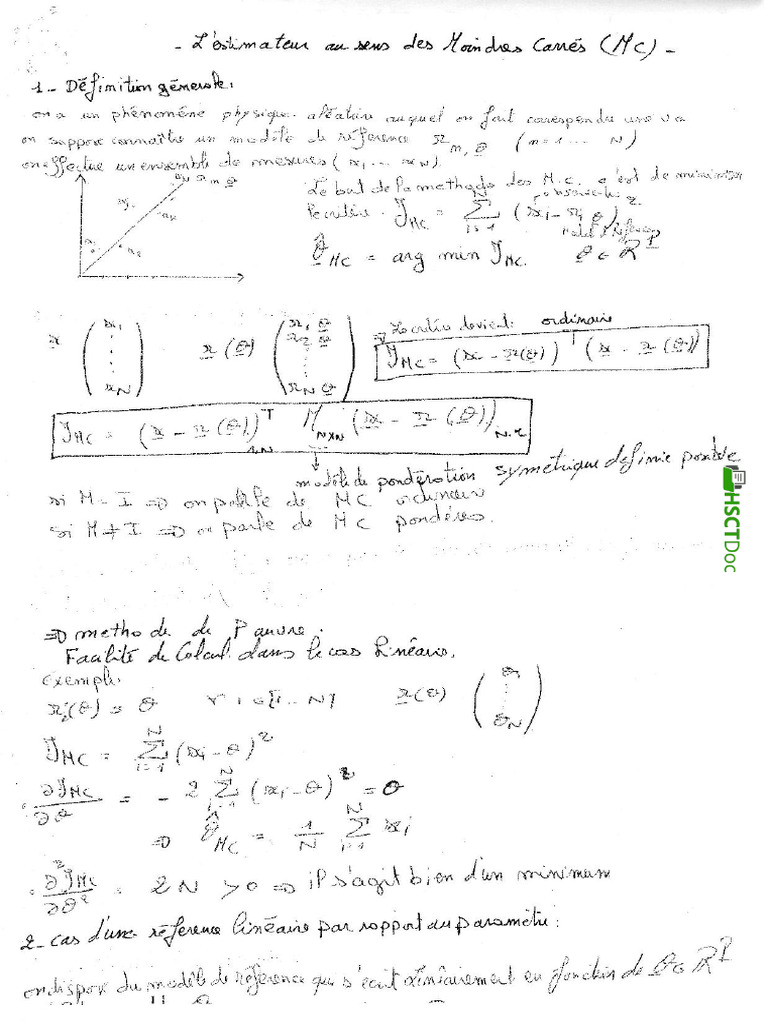 - L'estimateur au sens des Moindres Carrés (MC) -
1 - Définition générale:
on a un phénomène physique aléatoire auquel on fait correspondre une va
on suppose connaître un modèle de référence r n, θ (n = 1 ... N)
on effectue un ensemble de mesures (x1 ... xN)
Le but de la methode des M.C. c'est de minimiser
le critère. J MC = Σ i=1 N (xi - ri θ)²
θ̂ MC = arg min J MC. θ ∈ R^P
x (x1 ⋮ xN) r(θ) (r1 θ r2 θ ⋮ rN θ) ⇒ Le critère devient: ordinaire
J MC = (x - r(θ))^T (x - r(θ))
J MC = (x - r(θ))^T M NxN (x - r(θ)) N.1
modèle de pondération symétrique definie positive
si M = I ⇒ on parle de MC ordinaire
si M ≠ I ⇒ on parle de MC pondérés.
HSCTDoc
⇒ methode de Pauvre.
Facilité de Calcul dans le cas linéaire.
exemple.
ri(θ) = θ ∀ i ∈ [1 ... N] r(θ) (θ ⋮ θN)
J MC = Σ i=1 N (xi - θ)²
∂J MC / ∂θ = - 2 Σ i=1 N (xi - θ)² = 0
⇒ θ̂ MC = 1/N Σ i=1 N xi
∂²J MC / ∂θ² = 2N > 0 ⇒ il s'agit bien d'un minimum
2 - cas d'une référence linéaire par rapport au paramètre:
on dispose du modèle de référence qui s'écrit linéairement en fonction de θ ∈ R^P